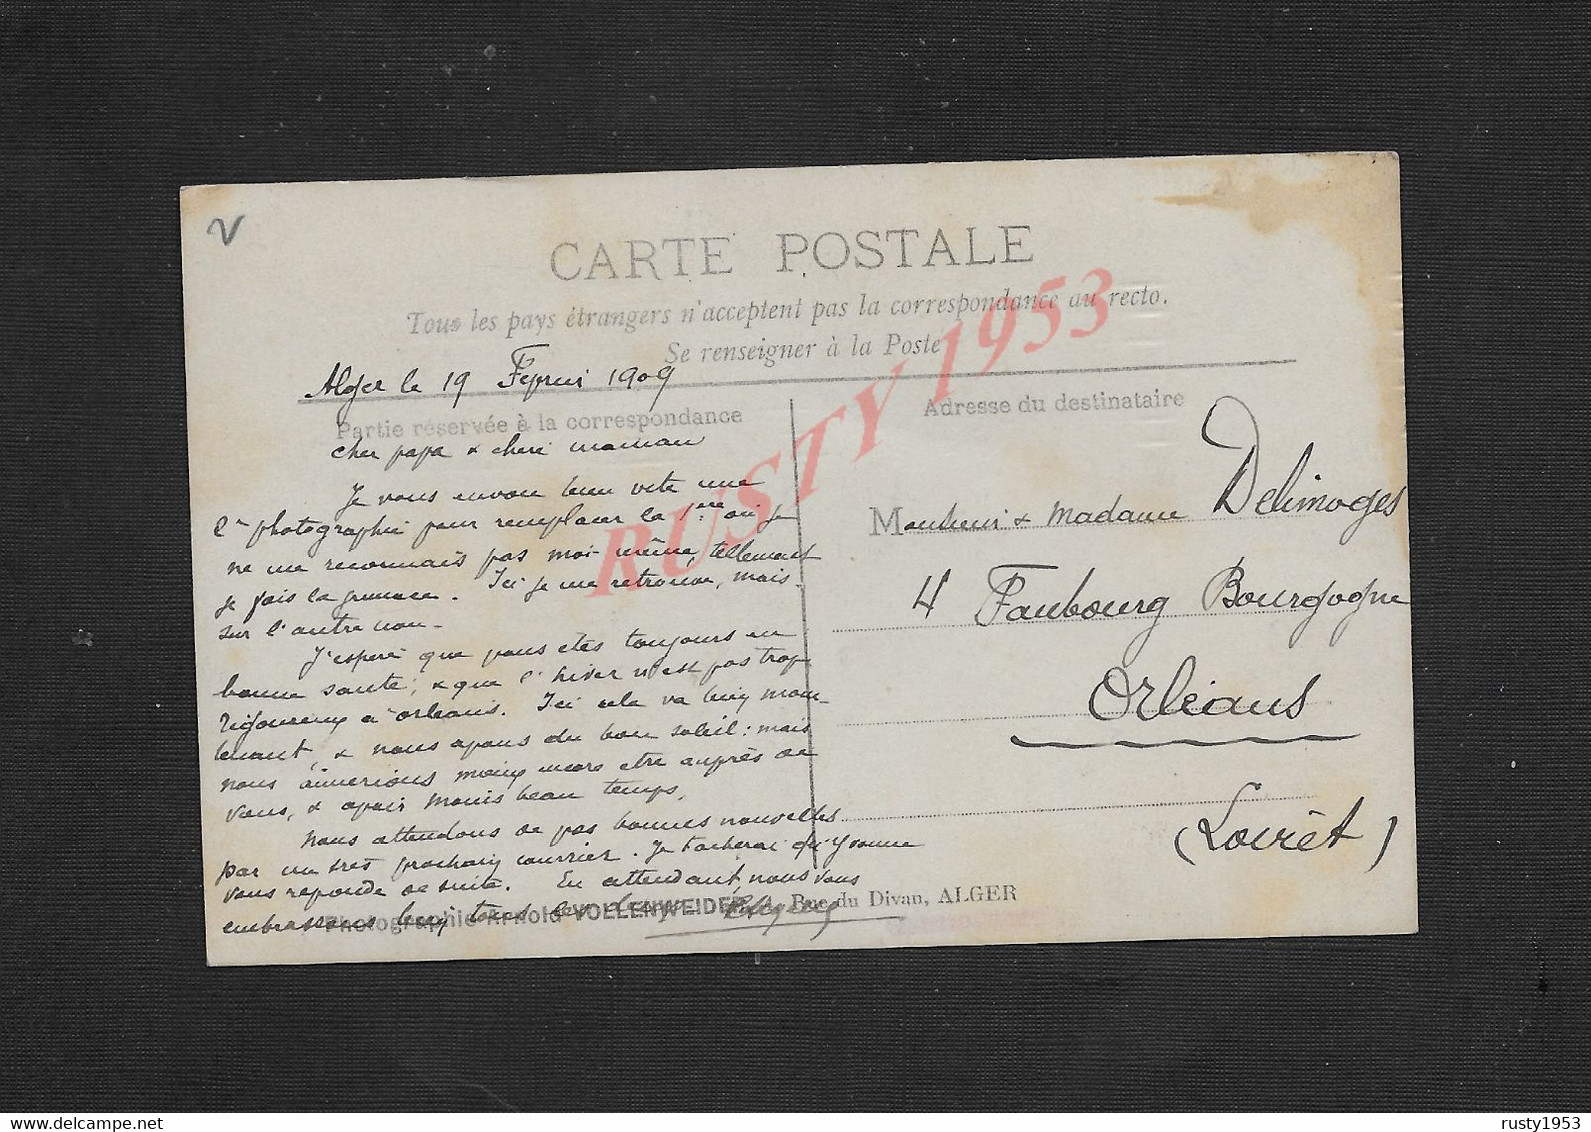 CARTE POSTALE
Tous les pays étrangers n'acceptent pas la correspondance au recto.
Se renseigner à la Poste
RUSTY 1953
Alger le 19 Fevrier 1909
Partie réservée à la correspondance
cher papa & cheri maman
Je vous envoie bien vite une
2e photographie pour remplacer la 1ere ou je
ne me reconnais pas moi même, tellement
je fais la grimace. Ici je me retrouve, mais
sur l'autre non-
J'espere que vous etes toujours en
bonne santé, & que l'hiver n'est pas trop
rigoureux à orleans. Ici cela va bien main-
tenant, & nous avons du bon soleil: mais
nous aimerions mieux encore etre auprès de
vous, & avoir moins beau temps.
Nous attendons de vos bonnes nouvelles
par un tres prochain courrier. Je tacherai qu'Yvonne
vous reponde de suite. En attendant, nous vous
embrassons bien tous les deux
Photographie Arnold VOLLENWEIDER, Rue du Divan, ALGER
Adresse du destinataire
Monsieur & Madame Delimoges
4 Faubourg Bourgogne
Orléans
(Loiret)
rusty1953